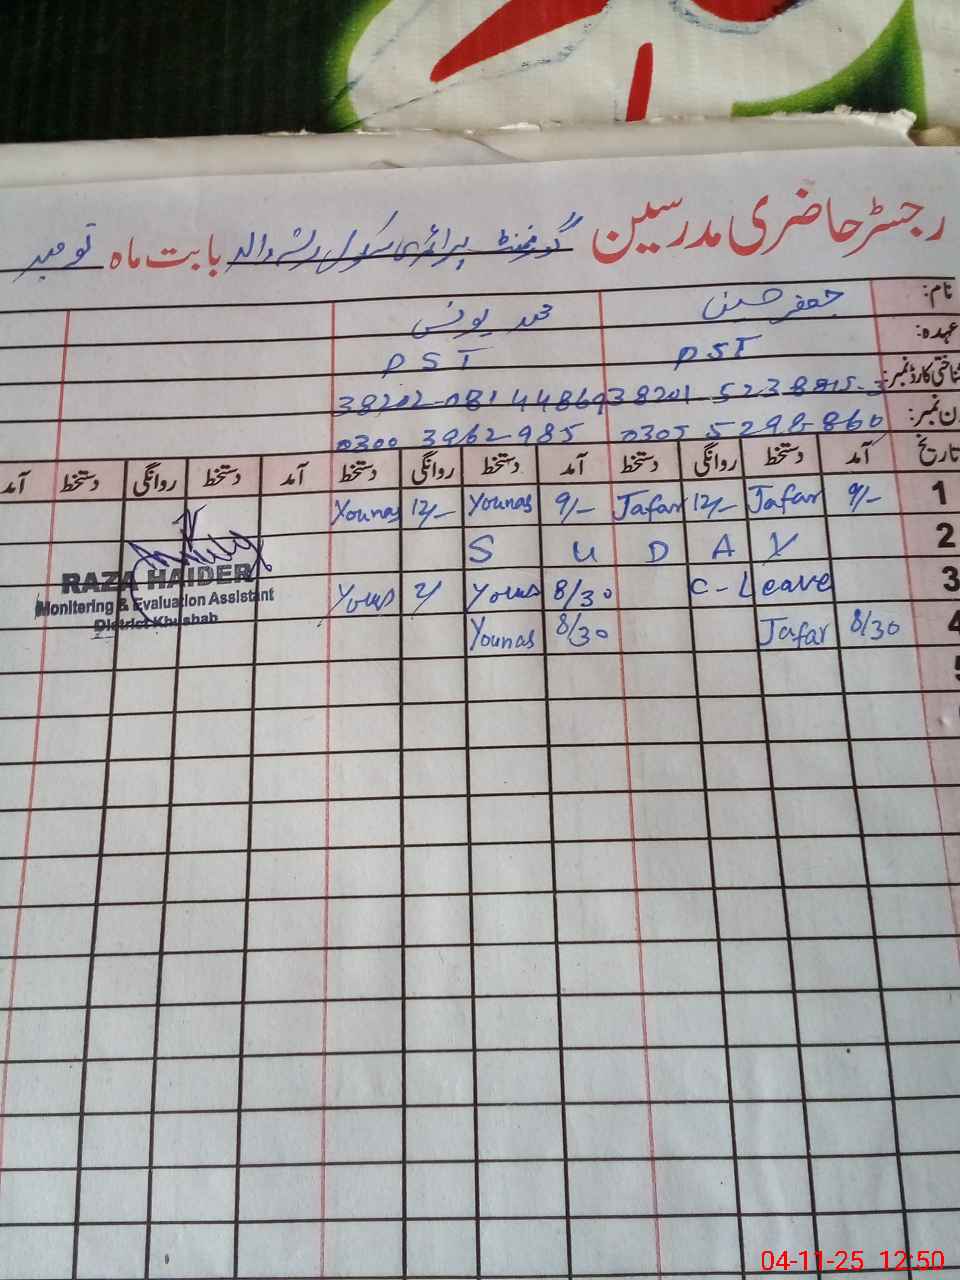 رجسٹر حاضری مدرسین گورنمنٹ پرائمری سکول والہ بابت ماہ نومبر
نام: جعفر حسین محمد یونس
عہدہ: PST PST
شناختی کارڈ نمبر: 38201 5238815-3 38202-0814486
فون نمبر: 0305 5298860 0300 3962985
تاریخ آمد دستخط روانگی دستخط آمد دستخط روانگی دستخط آمد دستخط روانگی دستخط آمد
1 9/- Jafar 12/- Jafar 9/- Younas 12/- Younas
2 S U D A Y
3 C-Leave 8/30 Younas 2/ Younas
4 8/30 Jafar 8/30 Younas
5
RAZA HAIDER
Monitering & Evaluation Assistant
District Khushab
04-11-25 12:50